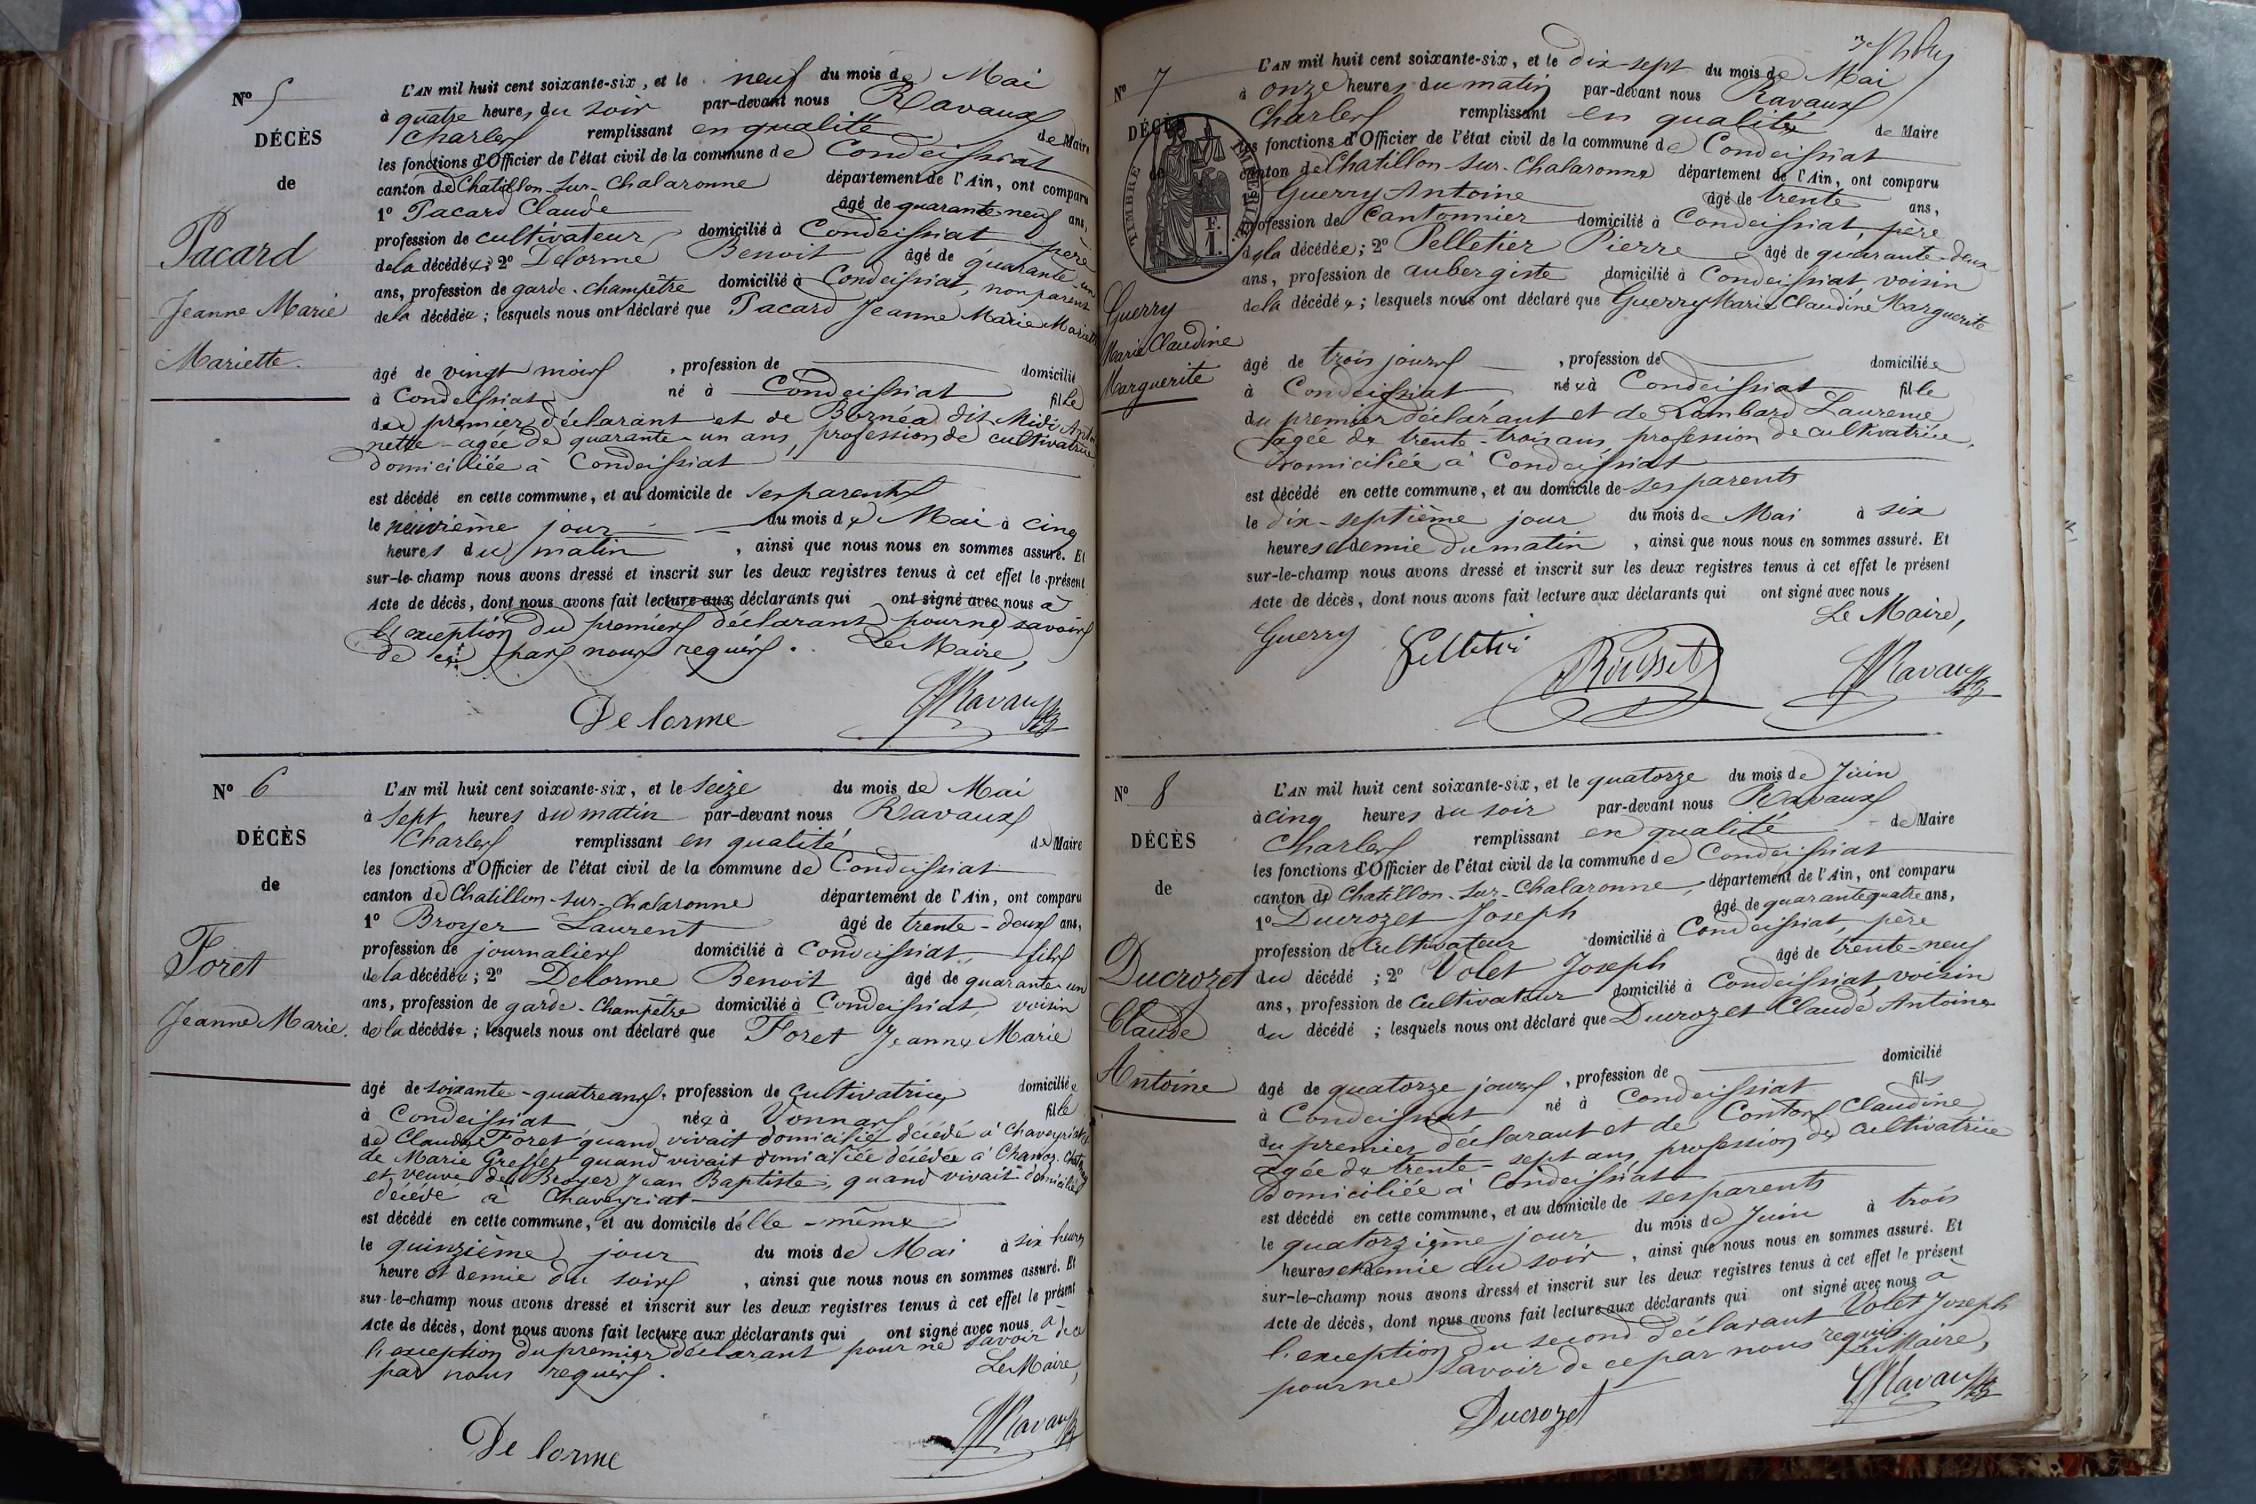 N° 5
DÉCÈS
de
Pacard
Jeanne Marie
Mariette.
L'AN mil huit cent soixante-six, et le neuf du mois de Mai
à quatre heures du soir par-devant nous Ravaux
Charles remplissant en qualité de Maire
les fonctions d'Officier de l'état civil de la commune de Condeissiat
canton de Chatillon-sur-Chalaronne département de l'Ain, ont comparu
1° Pacard Claude âgé de quarante neuf ans,
profession de cultivateur domicilié à Condeissiat père
de la décédée; 2° Delorme Benoit âgé de quarante-un
ans, profession de garde-champêtre domicilié à Condeissiat, non parent
de la décédée; lesquels nous ont déclaré que Pacard Jeanne Marie Mariette
âgé de vingt mois, profession de domicilié
à Condeissiat né à Condeissiat fille
du premier déclarant et de Bornéa dit Midi
nette âgée de quarante-un ans, profession de cultivatrice
domiciliée à Condeissiat
est décédé en cette commune, et au domicile de ses parents
le neuvième jour du mois de Mai à cinq
heures du matin, ainsi que nous nous en sommes assuré. Et
sur-le-champ nous avons dressé et inscrit sur les deux registres tenus à cet effet le présent
Acte de décès, dont nous avons fait lecture aux déclarants qui ont signé avec nous à
l'exception du premier déclarant pour ne savoir
de ce par nous requis. Le Maire,
Delorme Ravaux
N° 6
DÉCÈS
de
Foret
Jeanne Marie.
L'AN mil huit cent soixante-six, et le seize du mois de Mai
à sept heures du matin par-devant nous Ravaux
Charles remplissant en qualité de Maire
les fonctions d'Officier de l'état civil de la commune de Condeissiat
canton de Chatillon-sur-Chalaronne département de l'Ain, ont comparu
1° Broyer Laurent âgé de trente-deux ans,
profession de journalier domicilié à Condeissiat, fils
de la décédée; 2° Delorme Benoit âgé de quarante un
ans, profession de garde-champêtre domicilié à Condeissiat, voisin
de la décédée; lesquels nous ont déclaré que Foret Jeanne Marie
âgé de soixante-quatre ans, profession de cultivatrice domiciliée
à Condeissiat née à Vonnas fille
de Claude Foret quand vivait domicilié décédé à Chaveyriat
de Marie Greffet quand vivait domiciliée décédée à Chanoz-Chat
et veuve de Broyer Jean Baptiste, quand vivait domicilié
décédé à Chaveyriat
est décédé en cette commune, et au domicile d'elle-même
le quinzième jour du mois de Mai à six heures
heure et demie du soir, ainsi que nous nous en sommes assuré. Et
sur-le-champ nous avons dressé et inscrit sur les deux registres tenus à cet effet le présent
Acte de décès, dont nous avons fait lecture aux déclarants qui ont signé avec nous à
l'exception du premier déclarant pour ne savoir de ce
par nous requis. Le Maire,
Delorme Ravaux
N° 7
DÉCÈS
de
TIMBRE IMPERIAL
F. 1.
Guerry
Marie Claudine
Marguerite
L'AN mil huit cent soixante-six, et le dix-sept du mois de Mai
à onze heures du matin par-devant nous Ravaux
Charles remplissant en qualité de Maire
les fonctions d'Officier de l'état civil de la commune de Condeissiat
canton de Chatillon-sur-Chalaronne département de l'Ain, ont comparu
1° Guerry Antoine âgé de trente ans,
profession de Cantonnier domicilié à Condeissiat, père
de la décédée; 2° Pelletier Pierre âgé de quarante-deux
ans, profession de aubergiste domicilié à Condeissiat voisin
de la décédée; lesquels nous ont déclaré que Guerry Marie Claudine Marguerite
âgé de trois jours, profession de domiciliée
à Condeissiat, née à Condeissiat fille
du premier déclarant et de Lombard Laurence
âgée de trente-trois ans, profession de cultivatrice,
domiciliée à Condeissiat
est décédé en cette commune, et au domicile de ses parents
le dix-septième jour du mois de Mai à six
heures et demie du matin, ainsi que nous nous en sommes assuré. Et
sur-le-champ nous avons dressé et inscrit sur les deux registres tenus à cet effet le présent
Acte de décès, dont nous avons fait lecture aux déclarants qui ont signé avec nous
Le Maire,
Guerry Pelletier Rousset Ravaux
N° 8
DÉCÈS
de
Ducrozet
Claude
Antoine
L'AN mil huit cent soixante-six, et le quatorze du mois de Juin
à cinq heures du soir par-devant nous Ravaux
Charles remplissant en qualité de Maire
les fonctions d'Officier de l'état civil de la commune de Condeissiat
canton de Chatillon-sur-Chalaronne, département de l'Ain, ont comparu
1° Ducrozet Joseph âgé de quarante quatre ans,
profession de Cultivateur domicilié à Condeissiat, père
du décédé; 2° Volet Joseph âgé de trente-neuf
ans, profession de Cultivateur domicilié à Condeissiat, voisin
du décédé; lesquels nous ont déclaré que Ducrozet Claude Antoine
âgé de quatorze jours, profession de domicilié
à Condeissiat né à Condeissiat fils
du premier déclarant et de Contors Claudine
âgée de trente-sept ans, profession de cultivatrice
domiciliée à Condeissiat
est décédé en cette commune, et au domicile de ses parents
le quatorzième jour du mois de Juin à trois
heures et demie du soir, ainsi que nous nous en sommes assuré. Et
sur-le-champ nous avons dressé et inscrit sur les deux registres tenus à cet effet le présent
Acte de décès, dont nous avons fait lecture aux déclarants qui ont signé avec nous à
l'exception du second déclarant Volet Joseph
pour ne savoir de ce par nous requis
Le Maire,
Ducrozet Ravaux